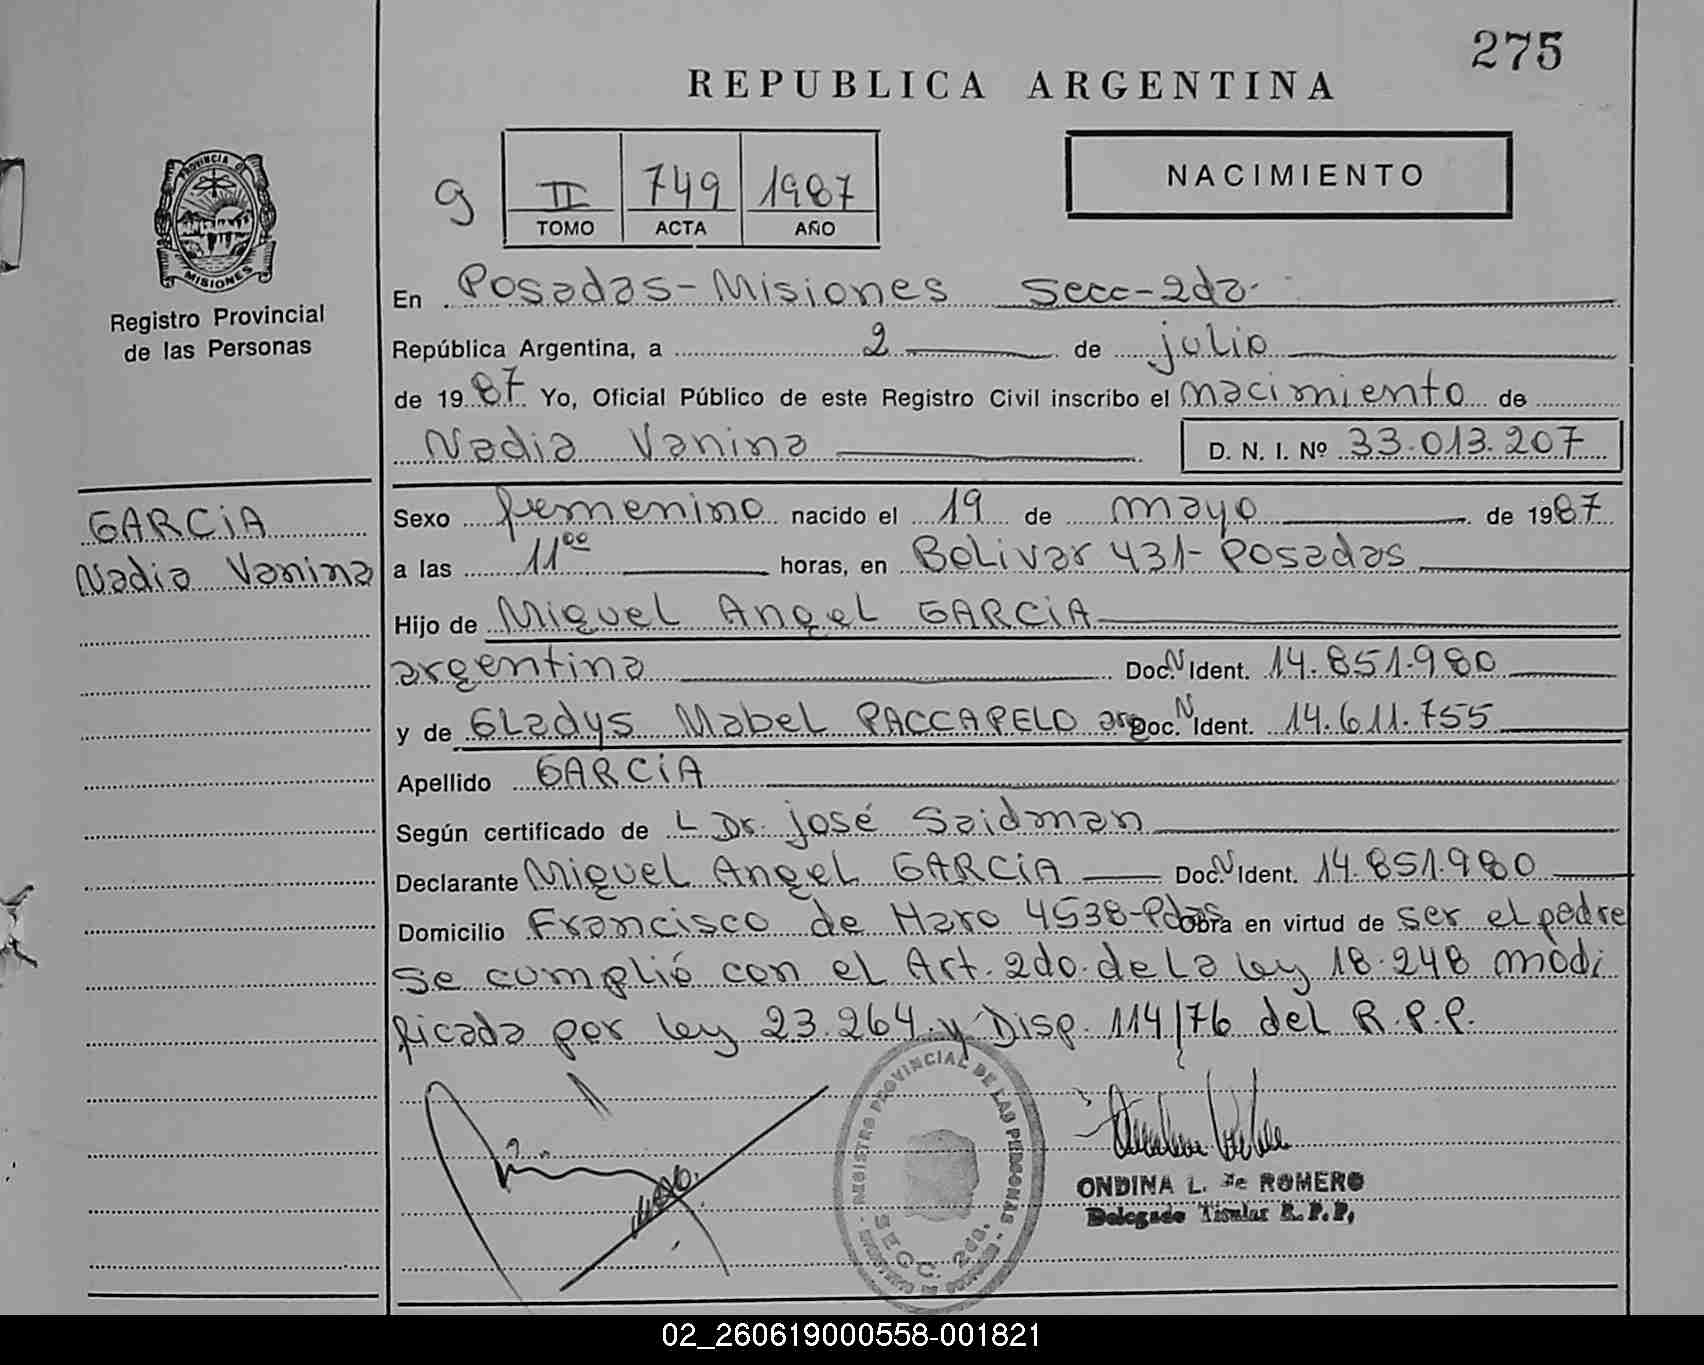 275
REPUBLICA ARGENTINA
NACIMIENTO
g II 749 1987
TOMO ACTA AÑO
PROVINCIA DE
MISIONES
Registro Provincial
de las Personas
En Posadas - Misiones Secc - 2da.
República Argentina, a 2 de julio
de 1987 Yo, Oficial Público de este Registro Civil inscribo el nacimiento de
Nadia Vanina D. N. I. Nº 33.013.207
GARCIA
Nadia Vanina
Sexo femenino nacido el 19 de mayo de 1987
a las 11⁰⁰ horas, en Bolivar 431 - Posadas
Hijo de Miguel Angel GARCIA
argentina Doc. N Ident. 14.851.980
y de Gladys Mabel PACCAPELO arg Doc. N Ident. 14.611.755
Apellido GARCIA
Según certificado de L Dr. José Saidman
Declarante Miguel Angel GARCIA Doc. N Ident. 14.851.980
Domicilio Francisco de Haro 4538 - Pdas Obra en virtud de ser el padre
Se cumplió con el Art. 2do. de la ley 18.248 modi
ficada por ley 23.264 y Disp. 114/76 del R.P.P.
REGISTRO PROVINCIAL DE LAS PERSONAS
SECC. 2da.
ONDINA L. de ROMERO
Delegado Titular R.P.P.
02_260619000558-001821